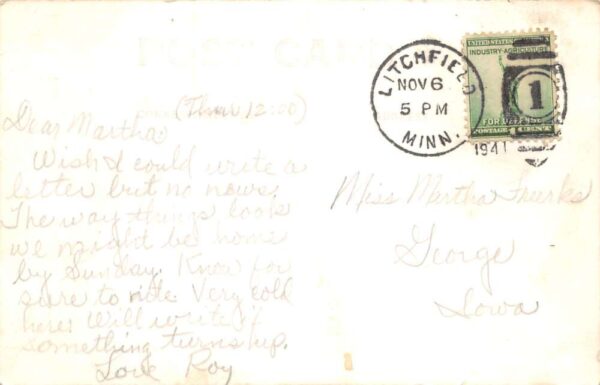 POST CARD
(Thur 12:00)
Dear Martha
Wish I could write a
letter but no news.
The way things look
we might be home
by Sunday. Know for
sure to nite. Very cold
here. Will write if
something turns up.
Love Roy
LITCHFIELD
NOV 6
5 PM
MINN.
1941
UNITED STATES
INDUSTRY-AGRICULTURE
FOR DEFENSE
POSTAGE 1 CENT
1
Miss Martha
George
Iowa